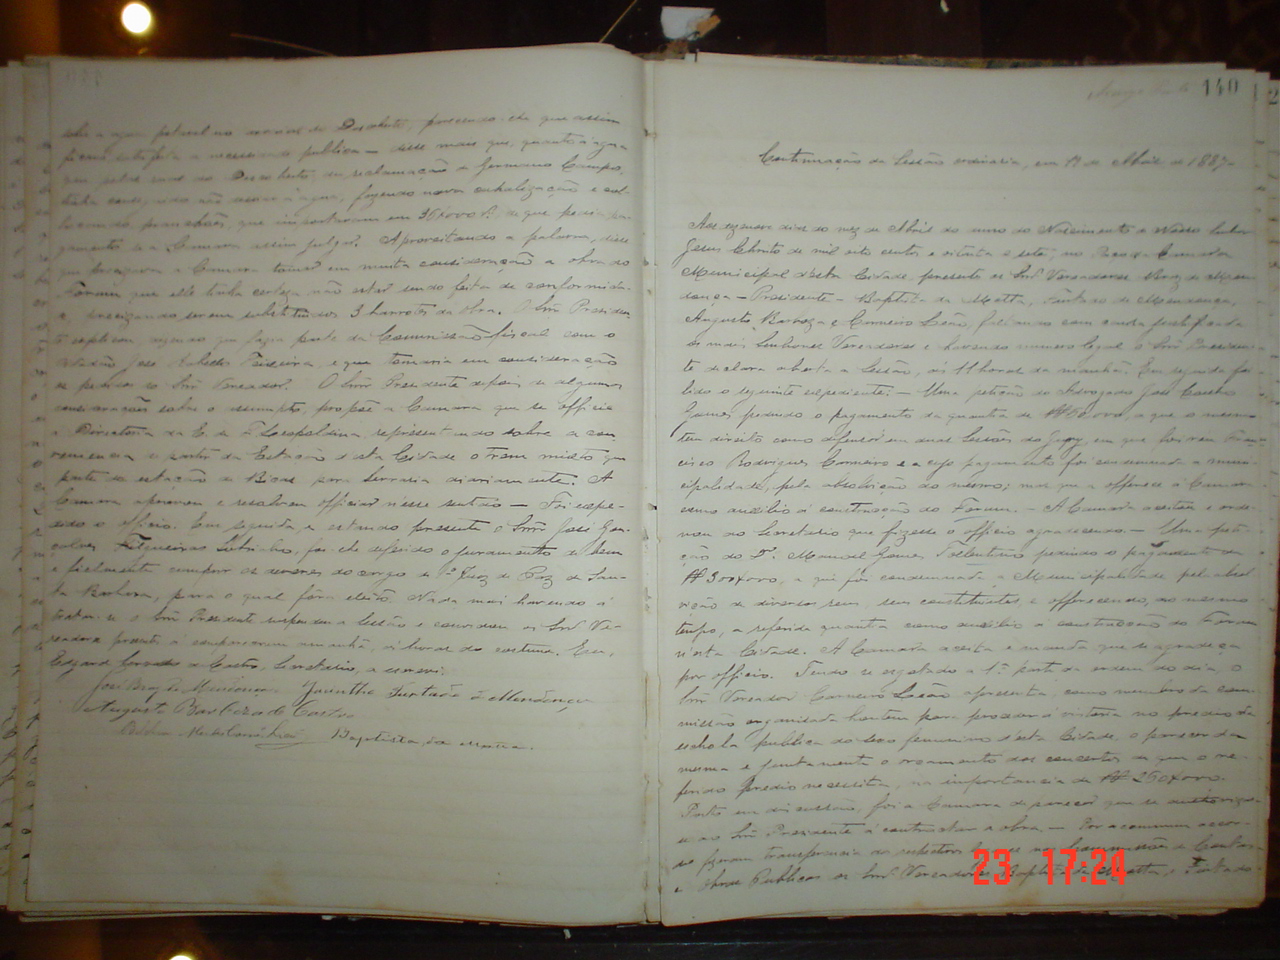 que assim
ficará satisfeita a necessidade publica — disse mais que, quanto á agua
Descoberto, reclamação de Germano Campos,
fazendo nova canalisação e col-
que importaram em
gamento se a Camara assim julgar. Aproveitando a palavra, disse
a Camara tomar em muita consideração a obra do
Forum que elle tinha certeza não estar sendo feita de conformida-
precizando serem substituidos 3 barrotes da obra. O Snr. Presiden-
que fazia parte da Commissão fiscal com o
cidadão José Teixeira, e que tomaria em consideração
Snr. Vereador. O Snr. Presidente depois de algumas
considerações sobre o assumpto, propõe a Camara que se officie
a Directoria da E. de F. Leopoldina representando sobre a con-
veniencia de partir da Estação d'esta Cidade o trem mixto que
parte da estação de Bicas para Serraria diariamente. A
Camara approvou e resolveu officiar n'esse sentido — Foi expe-
dido o officio. Em seguida, e estando presente o Snr. José Gon-
çalves Filgueiras Sobrinho, foi-lhe deferido o juramento de bem
e fielmente cumprir os deveres do cargo de 1º Juiz de Paz de San-
ta Barbara, para o qual fôra eleito. Nada mais havendo á
tratar-se o Snr. Presidente suspendeu a Sessão e convidou os Snrs. Ve-
readores presentes á comparecerem amanhã, á horas do costume. Eu,
Edgard de Castro, Secretario, a escrevi.
José Braz de Mendonça Furtado de Mendonça
Augusto Barboza de Castro
Baptista da Motta.
140
Continuação da Sessão ordinaria, em 19 de Abril de 1887.
dias do mez de Abril do anno do Nascimento de Nosso Senhor
Jesus Christo de mil oito centos e oitenta e sete, no Paço da Camara
Municipal d'esta Cidade, presentes os Snrs. Vereadores Braz de Men-
donça — Presidente — Baptista da Motta, Furtado de Mendonça,
Augusto Barboza e Carneiro Leão, faltando com causa justificada
os mais Senhores Vereadores e havendo numero legal o Snr. Presiden-
te declara aberta a Sessão, ás 11 horas da manhã. Em seguida foi
lido o seguinte expediente: — Uma petição do Advogado José Coelho
Gomes, pedindo o pagamento da quantia de a que o mesmo
tem direito como defensor em duas Sessões do Jury, em que foi reu Fran-
cisco Rodrigues Carneiro e a cujo pagamento foi condemnada a muni-
cipalidade, pela absolvição do mesmo; mas que a offerece á Camara
como auxilio á construcção do Forum. — A Camara aceitou e orde-
nou ao Secretario que fizesse o officio agradecendo. — Uma peti-
ção do Dr. Manoel Gomes Tollentino pedindo o pagamento de
a que foi condemnada a Municipalidade pela absol-
vição de diversos reus, seus constituintes, e offerecendo, ao mesmo
tempo, a referida quantia como auxilio á construcção do Forum
n'esta Cidade. A Camara aceita e manda que se agradeça
por officio. Tendo se esgotado a 1ª parte da ordem do dia, o
Snr. Vereador Carneiro Leão apresenta, como membro da com-
missão organisada hontem para proceder á vistoria no predio da
eschola publica do sexo femenino d'esta Cidade, o parecer da
mesma e juntamente o orçamento dos concertos de que o re-
ferido predio necessita, na importancia de
Posto em discussão, foi a Camara de parecer que se authorize
ao Snr. Presidente á contractar a obra. — Por commum accor-
do fizeram transferencia Commissões de Contas
e Obras Publicas os Snrs. Vereadores Baptista da Motta, e Furtado
23 17:24